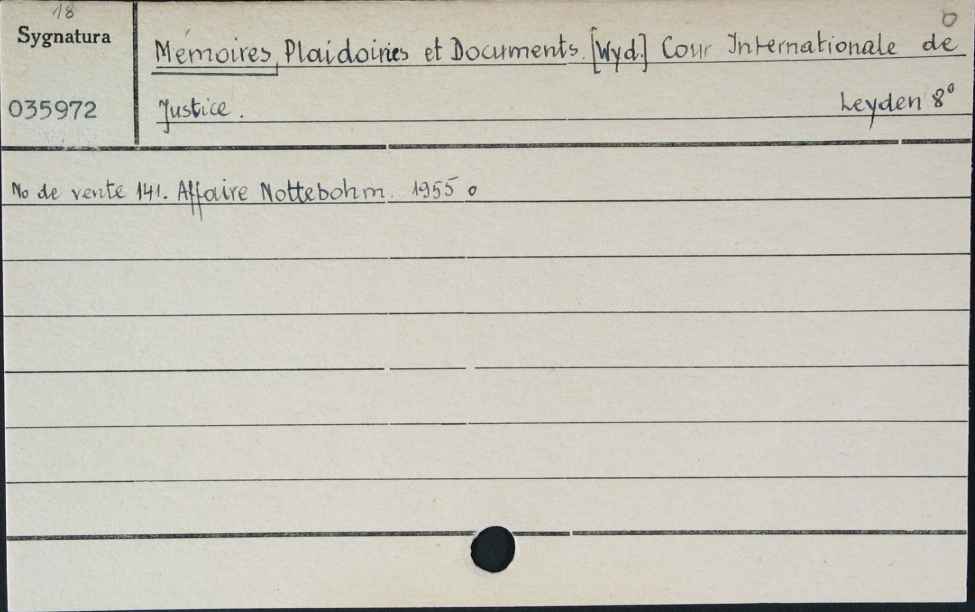 18
Sygnatura
035972
O
Mémoires, Plaidoiries et Documents. [Wyd.] Cour Internationale de
Justice. Leyden 8°
No de vente 141. Affaire Nottebohm. 1955 o